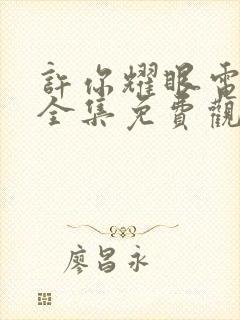 許你耀眼電
全集免費觀
廖昌永